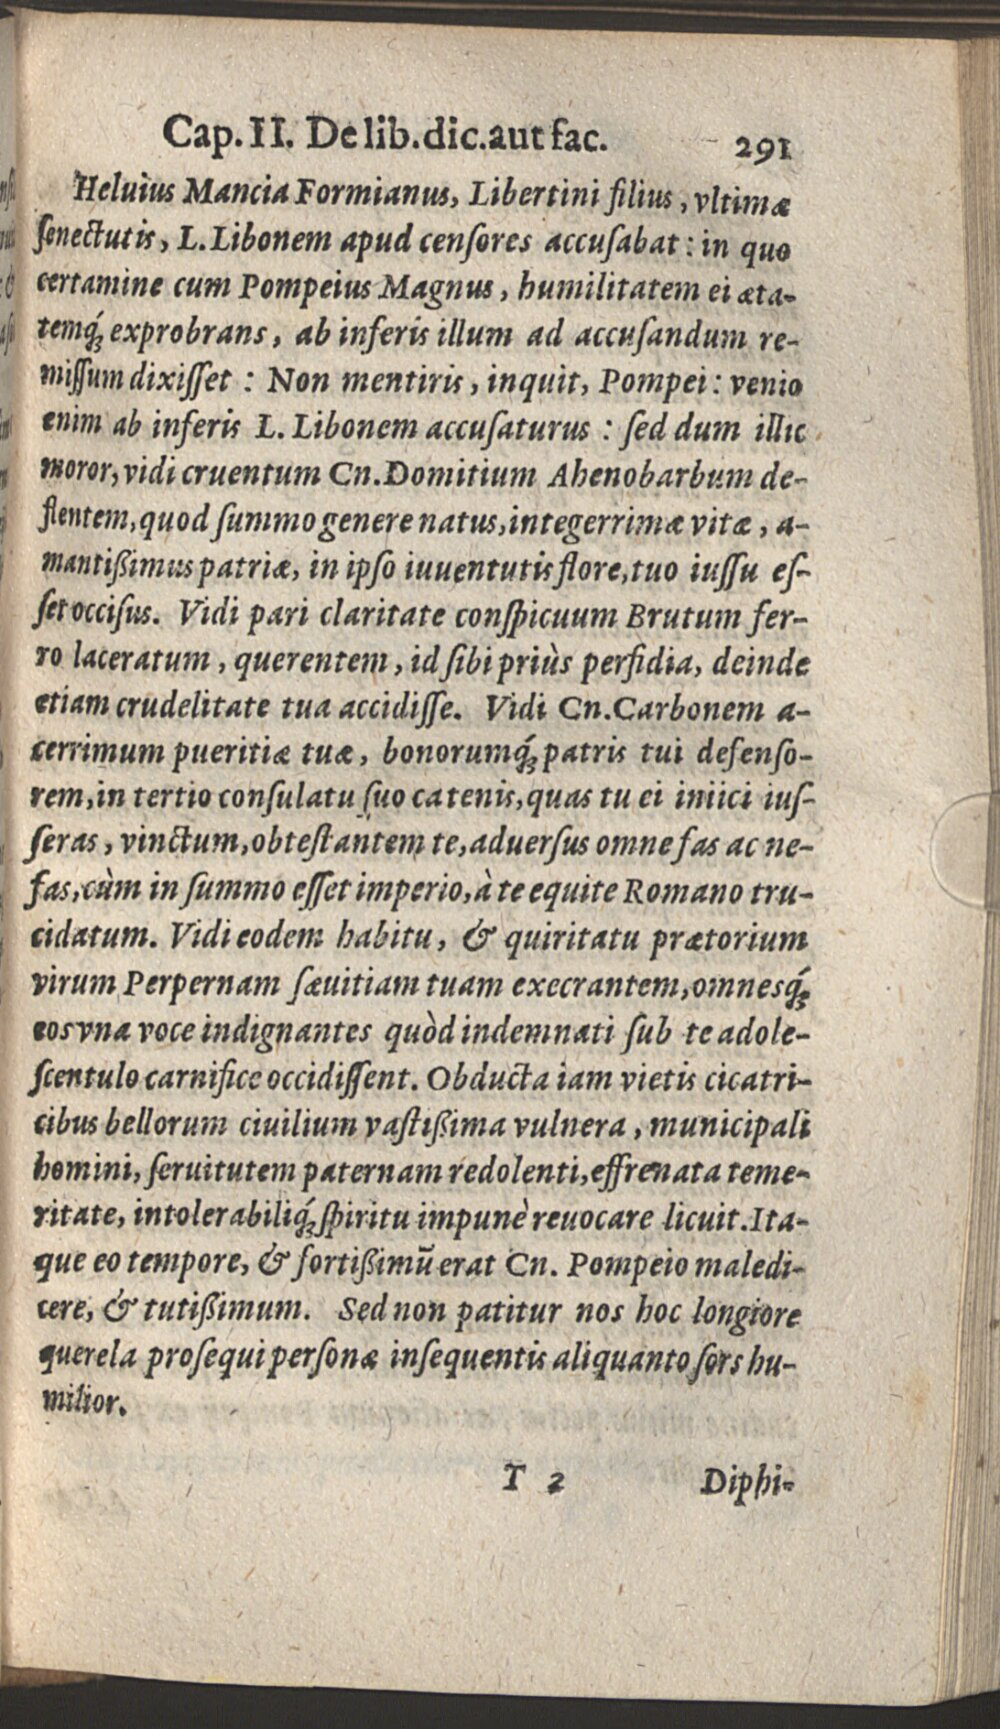 Cap. II. De lib. dic. aut fac. 291
Heluius Mancia Formianus, Libertini filius, vltimæ
ſenectutis, L. Libonem apud cenſores accuſabat: in quo
certamine cum Pompeius Magnus, humilitatem ei æta-
temq́; exprobrans, ab inferis illum ad accuſandum re-
miſſum dixiſſet: Non mentiris, inquit, Pompei: venio
enim ab inferis L. Libonem accuſaturus: ſed dum illic
moror, vidi cruentum Cn. Domitium Ahenobarbum de-
flentem, quod ſummo genere natus, integerrimæ vitæ, a-
mantißimus patriæ, in ipſo iuuentutis flore, tuo iuſſu eſ-
ſet occiſus. Vidi pari claritate conſpicuum Brutum fer-
ro laceratum, querentem, id ſibi priùs perfidia, deinde
etiam crudelitate tua accidiſſe. Vidi Cn. Carbonem a-
cerrimum pueritiæ tuæ, bonorumq́; patris tui defenſo-
rem, in tertio conſulatu ſuo catenis, quas tu ei iniici iuſ-
ſeras, vinctum, obteſtantem te, aduerſus omne fas ac ne-
fas, cùm in ſummo eſſet imperio, à te equite Romano tru-
cidatum. Vidi eodem habitu, & quiritatu prætorium
virum Perpernam ſæuitiam tuam execrantem, omnesq́;
eos vna voce indignantes quòd indemnati ſub te adole-
ſcentulo carnifice occidiſſent. Obducta iam vietis cicatri-
cibus bellorum ciuilium vaſtißima vulnera, municipali
homini, ſeruitutem paternam redolenti, effrenata teme-
ritate, intolerabiliq́; ſpiritu impunè reuocare licuit. Ita-
que eo tempore, & fortißimũ erat Cn. Pompeio maledi-
cere, & tutißimum. Sed non patitur nos hoc longiore
querela proſequi perſonæ inſequentis aliquanto ſors hu-
milior.
T 2 Diphi-